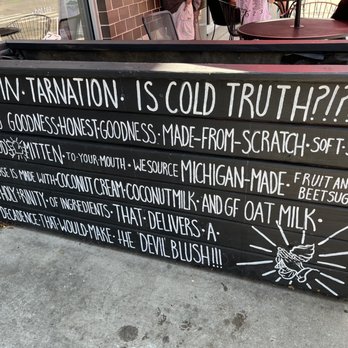 IN · TARNATION · IS COLD TRUTH?!?
GOODNESS · HONEST-GOODNESS · MADE-FROM-SCRATCH · SOFT-S
MITTEN - TO-YOUR-MOUTH · WE SOURCE MICHIGAN-MADE · FRUIT AN
BEET SUG
SE IS MADE WITH COCONUT CREAM, COCONUT MILK, AND GF OAT MILK ·
TRINITY · OF INGREDIENTS · THAT · DELIVERS · A ·
DECADENCE THAT WOULD MAKE · THE DEVIL BLUSH!!!